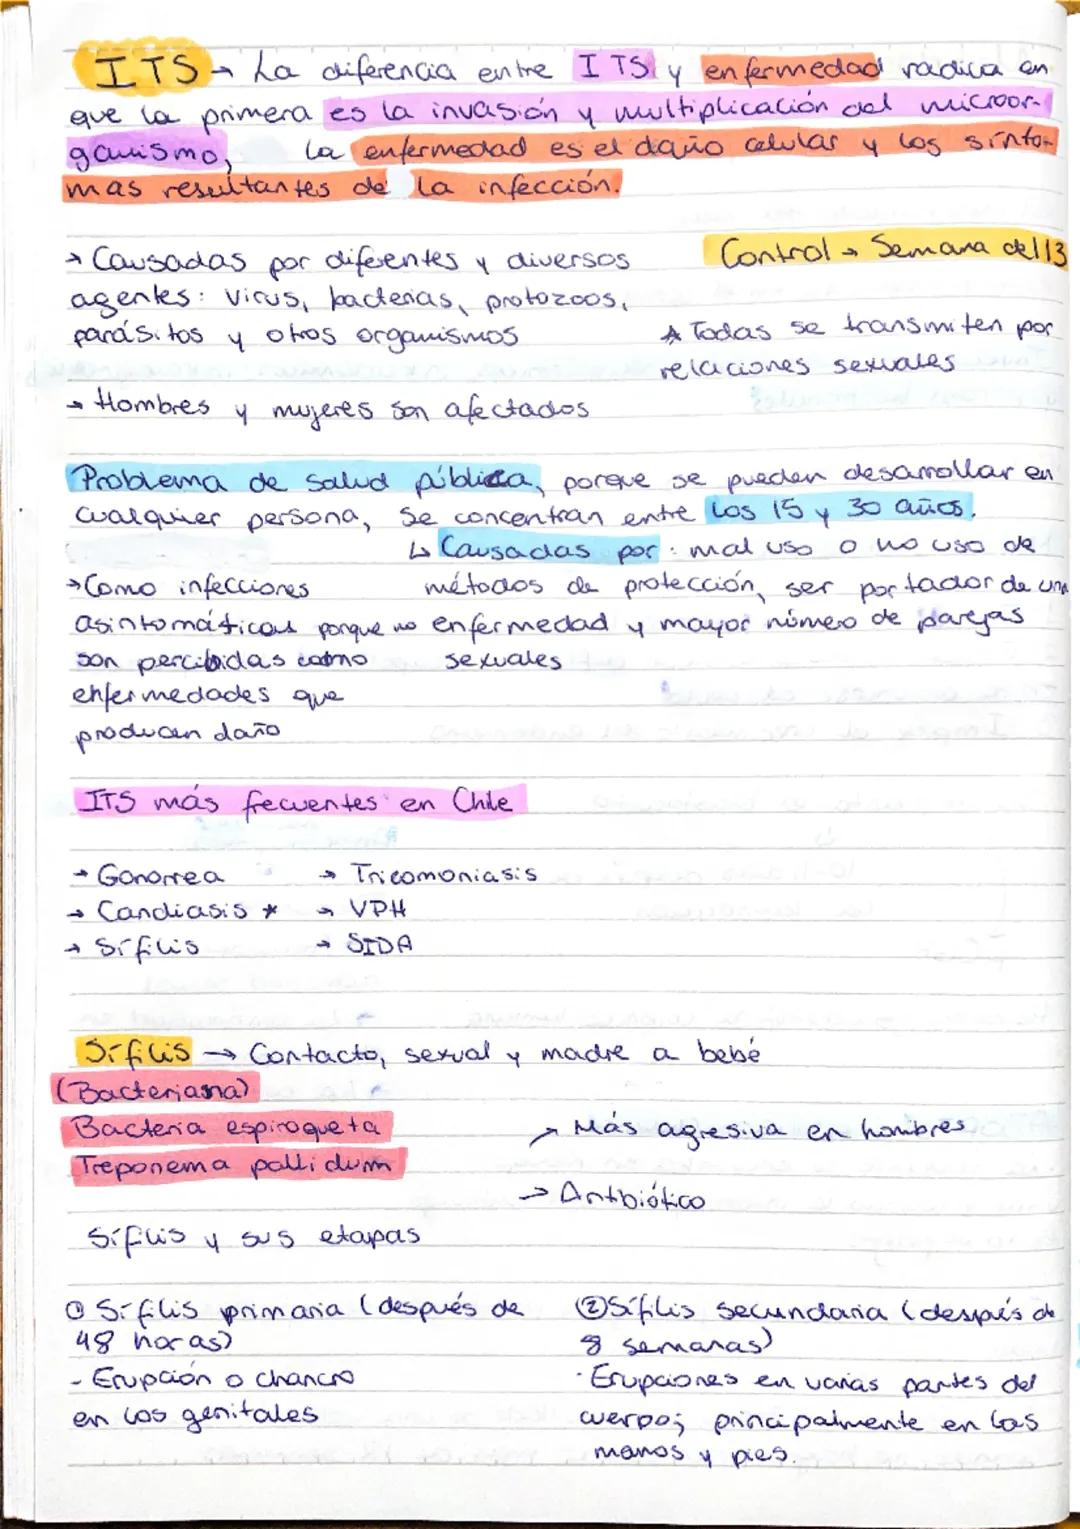 ITS → La diferencia entre ITS y enfermedad radica en
que la primera es la invasión y multiplicación del microor-
ganismo, la enfermedad es el daño celular y los sínto-
mas resultantes de la infección.
→ Causadas por diferentes y diversos
agentes: virus, bacterias, protozoos,
parásitos y otros organismos
→ Hombres y mujeres son afectados
Control → Semana del 13
* Todas se transmiten por
relaciones sexuales
Problema de salud pública, porque se pueden desarrollar en
cualquier persona, se concentran entre los 15 y 30 años.
↳ Causadas por: mal uso o no uso de
métodos de protección, ser portador de una
enfermedad y mayor número de parejas
sexuales
→ Como infecciones
asintomáticas porque no
son percibidas como
enfermedades que
producen daño
ITS más frecuentes en Chile
→ Gonorrea
→ Candiasis *
→ Sífilis
→ Tricomoniasis
→ VPH
→ SIDA
Sífilis → Contacto, sexual y madre a bebé
(Bacteriana)
Bacteria espiroqueta
Treponema pallidum
→ Más agresiva en hombres
→ Antibiótico
Sífilis y sus etapas
① Sífilis primaria (después de
48 horas)
- Erupción o chancro
en los genitales
② Sífilis secundaria (después de
8 semanas)
· Erupciones en varias partes del
cuerpo; principalmente en las
manos y pies.